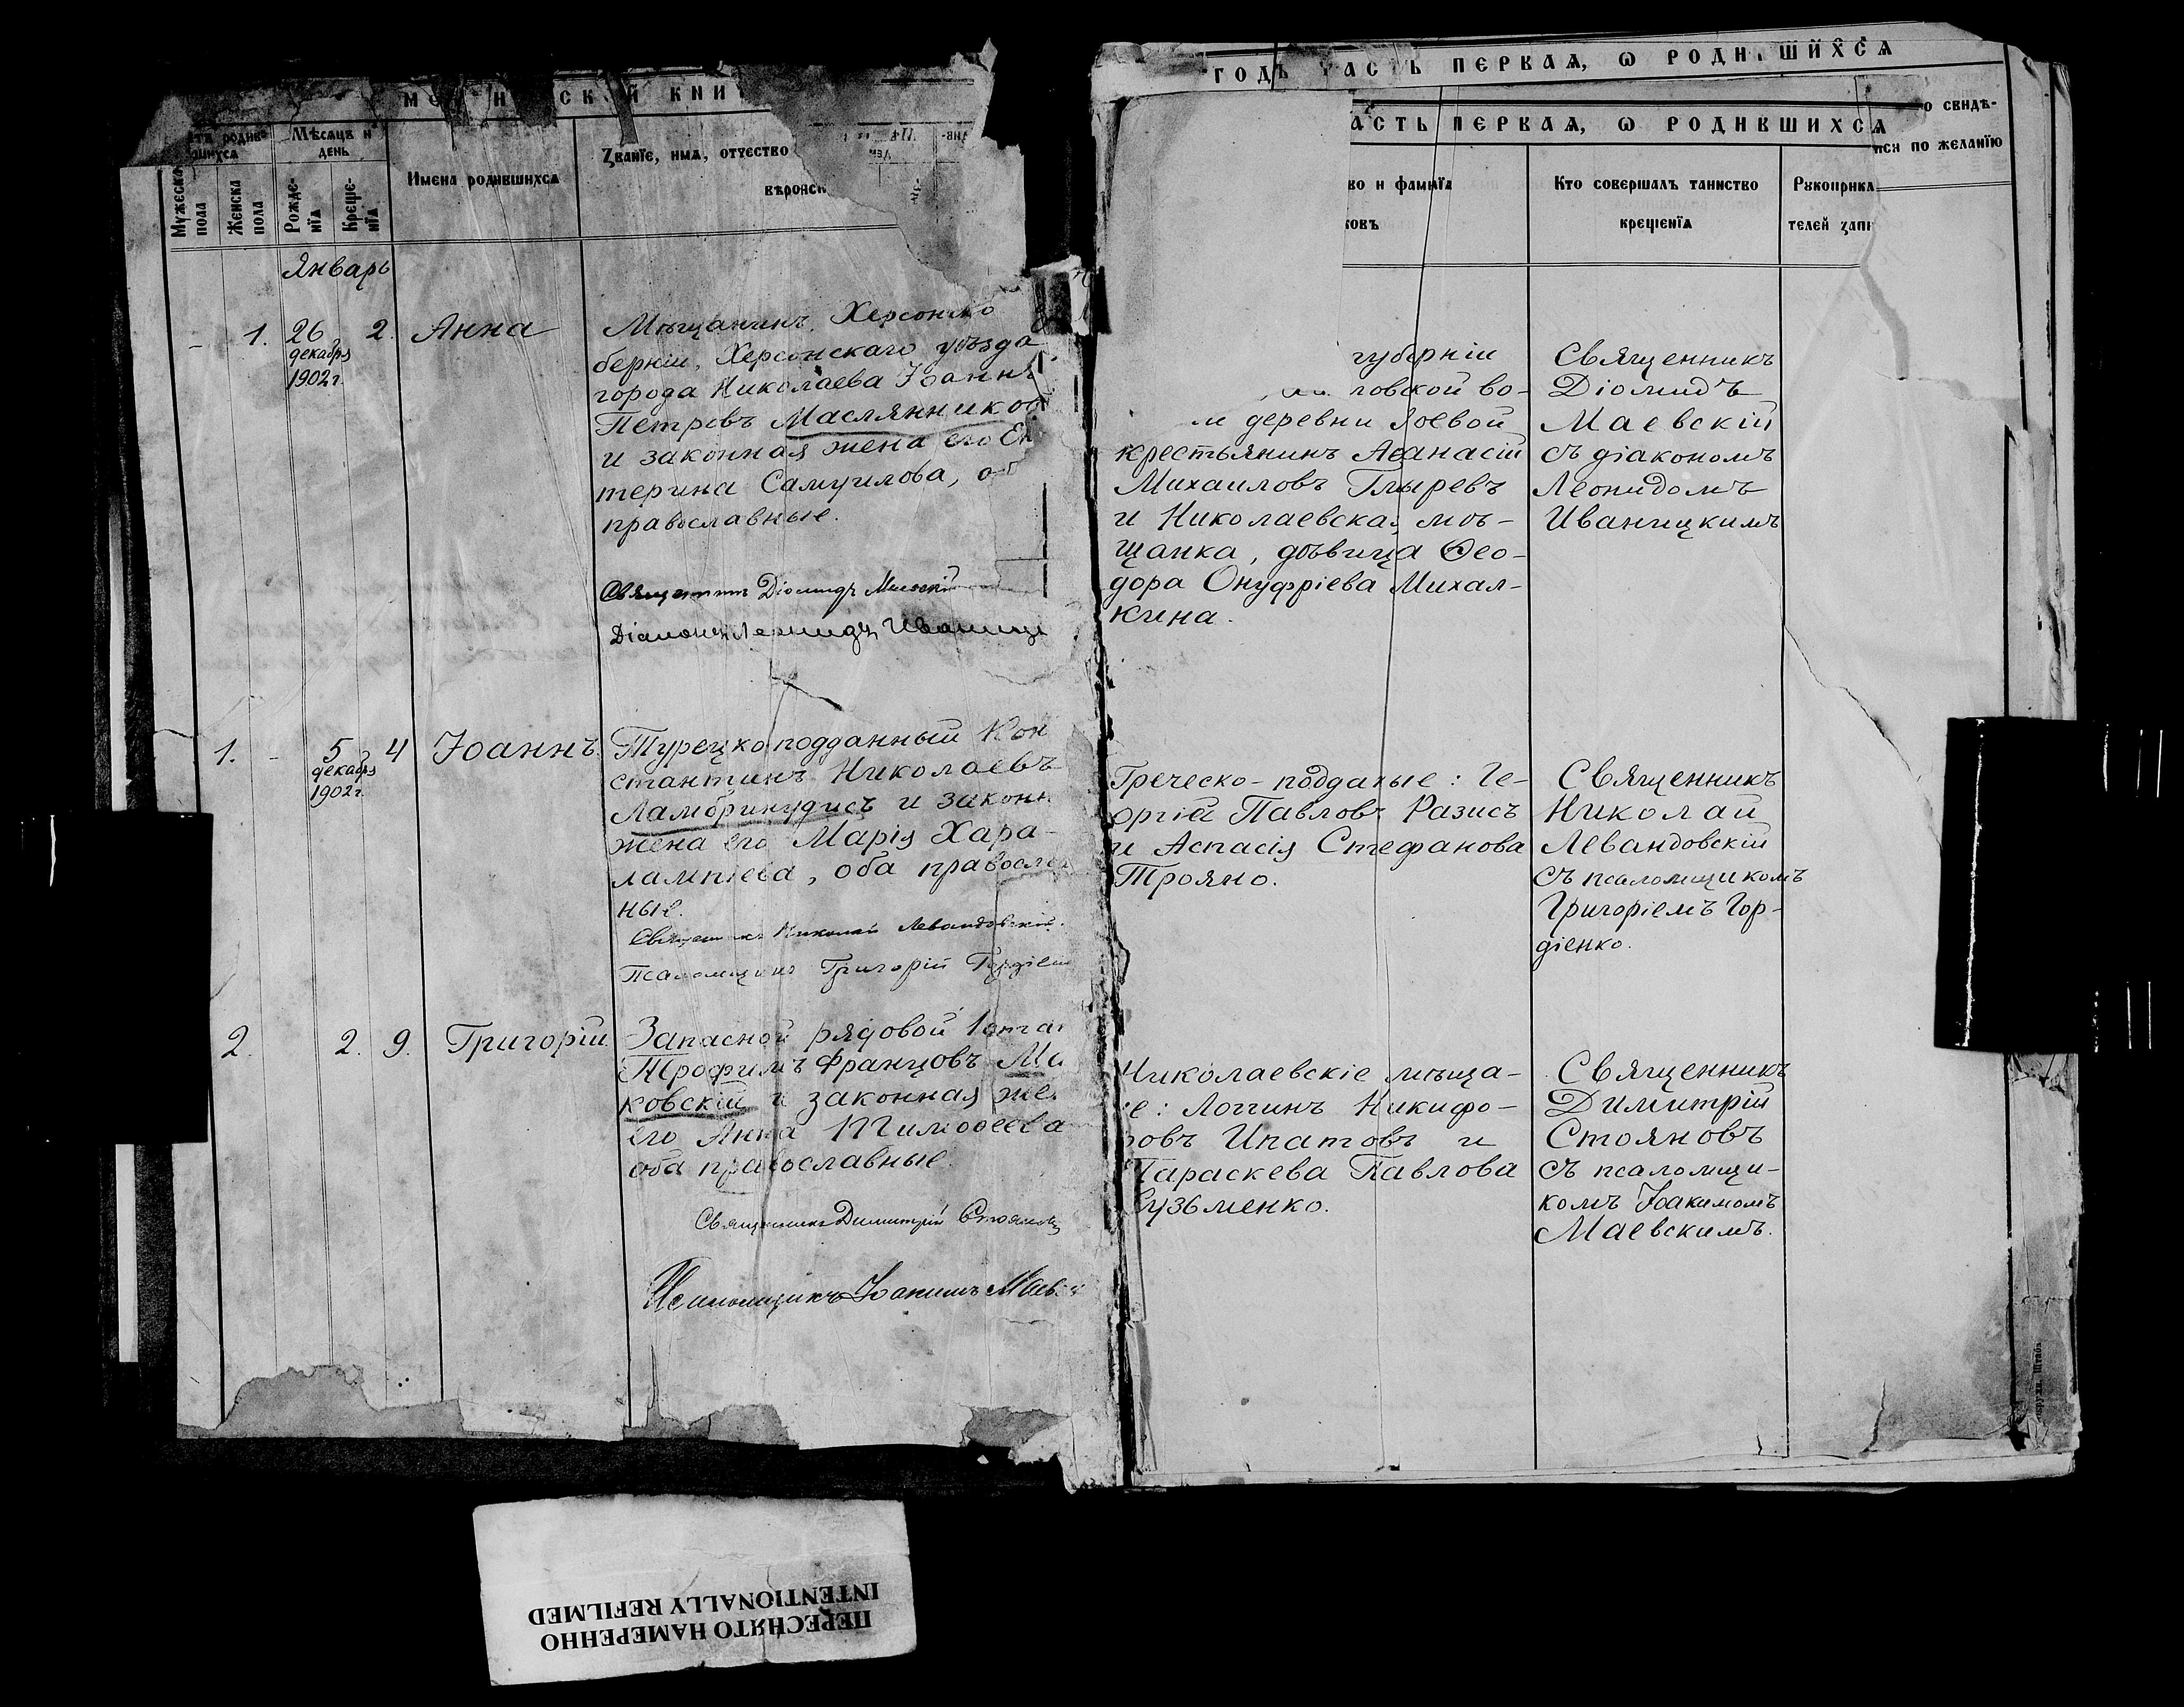 КНИ
Мѣсяцъ и
день
Мужеска
пола
Женска
пола
Рожде-
нїя
Креще-
нїя
Имена родившихся
Званїе, имя, отчество
вѣроисп
Январь
1. 26 2. Анна
декабря
1902 г.
Мѣщанинъ, Херсонско
берніи, Херсонскаго уѣзда
города Николаева Іоаннъ
Петровъ Маслянников
и законная жена его Ек
терина Самуилова, об
православные.
Священникъ Діомидъ Маевскій
Діаконъ Леонидъ Иваниц
1. - 5 4 Іоаннъ.
декабря
1902 г.
Турецкоподданный Кон
стантинъ Николаевъ
Ламбринудисъ и законн
жена его Марія Хара-
лампіева, оба православ
ные.
Священникъ Николай Левандовскій.
Псаломщикъ Григорій Гордіен
2. 2. 9. Григорій.
Запасной рядовой
Трофимъ Францовъ Ма
ковскій и законная же
его Анна Тимоѳеева
оба православные.
Священникъ Димитрій Стояновъ
Псаломщикъ Іоакимъ Маев
ГОДЪ ЧАСТЬ ПЕРВАЯ, Ѡ РОДИВШИХСЯ
о свидѣ-
иси по желанїю
АСТЬ ПЕРВАЯ, Ѡ РОДИВШИХСЯ
во и фамилїя
ковъ
Кто совершалъ таинство
крещенїя
Рукоприкл
телей запи
губерніи
ловской во-
и деревни Зоевой
крестьянинъ Аѳанасій
Михаиловъ Глыревъ
и Николаевская мѣ-
щанка, дѣвица Ѳео-
дора Онуфріева Михал-
кина.
Священникъ
Діомидъ
Маевскій
съ діакономъ
Леонидомъ
Иваницкимъ
Греческо-подданые: Ге-
оргій Павловъ Разисъ
и Аспасія Стефанова
Трояно.
Священникъ
Николай
Левандовскій
съ псаломщикомъ
Григоріемъ Гор-
діенко.
Николаевскіе мѣща-
е: Логгинъ Никифо-
ровъ Ипатовъ и
Параскева Павлова
Кузьменко.
Священникъ
Димитрій
Стояновъ
съ псаломщи-
комъ Іоакимомъ
Маевскимъ.
ПЕРЕСНЯТО НАМЕРЕННО
INTENTIONALLY REFILMED